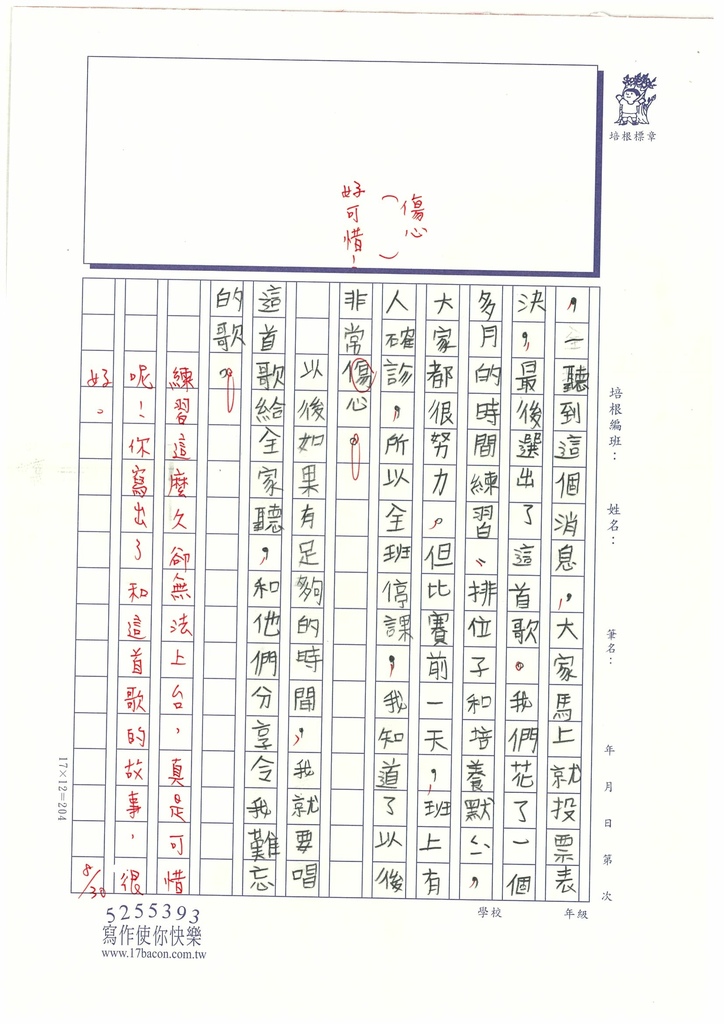 培根標章
傷心
（　）
好可惜！
培根編班：
姓名：
筆名：
年 月 日 第 次
，一聽到這個消息，大家馬上就投票表
決，最後選出了這首歌。我們花了一個
多月的時間練習、排位子和培養默ㄑㄧˋ，
大家都很努力。但比賽前一天，班上有
人確診，所以全班停課，我知道了以後
非常傷心。
以後如果有足夠的時間，我就要唱
這首歌給全家聽，和他們分享令我難忘
的歌。
練習這麼久卻無法上台，真是可惜
呢！你寫出了和這首歌的故事，很
好。
8/30
17×12=204
學校
年級
5255393
寫作使你快樂
www.17bacon.com.tw